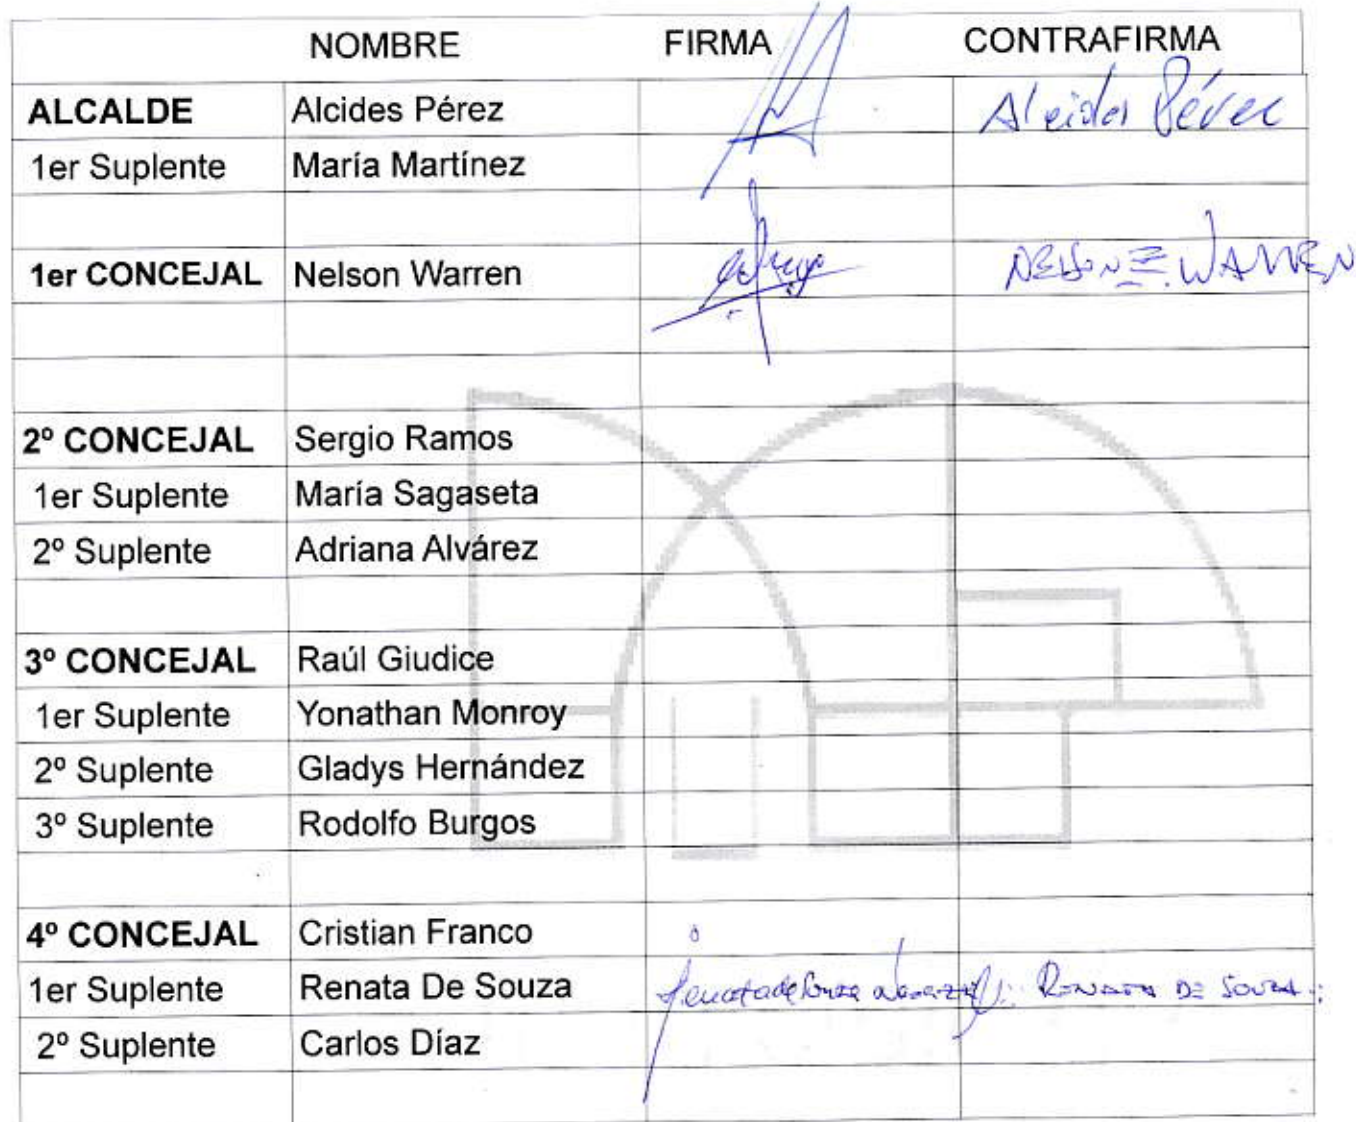 NOMBRE FIRMA CONTRAFIRMA
ALCALDE Alcides Pérez Alcides Pérez
1er Suplente María Martínez
1er CONCEJAL Nelson Warren NELSON E. WARREN
2º CONCEJAL Sergio Ramos
1er Suplente María Sagaseta
2º Suplente Adriana Alvárez
3º CONCEJAL Raúl Giudice
1er Suplente Yonathan Monroy
2º Suplente Gladys Hernández
3º Suplente Rodolfo Burgos
4º CONCEJAL Cristian Franco
1er Suplente Renata De Souza Renata de Souza RENATA DE SOUZA
2º Suplente Carlos Díaz